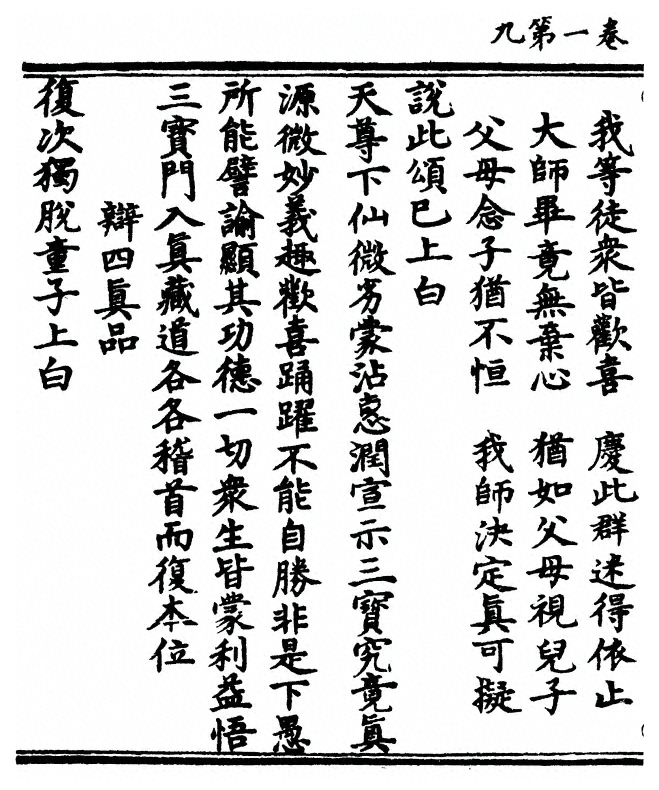 卷一第九
我等徒衆皆歡喜　慶此群迷得依止
大師畢竟無棄心　猶如父母視兒子
父母念子猶不恒　我師決定眞可擬
說此頌已上白
天尊下仙微劣蒙沾惠潤宣示三寶究竟眞
源微妙義趣歡喜踊躍不能自勝非是下愚
所能譬諭顯其功德一切衆生皆蒙利益悟
三寶門入眞藏道各各稽首而復本位
辯四眞品
復次獨脫童子上白